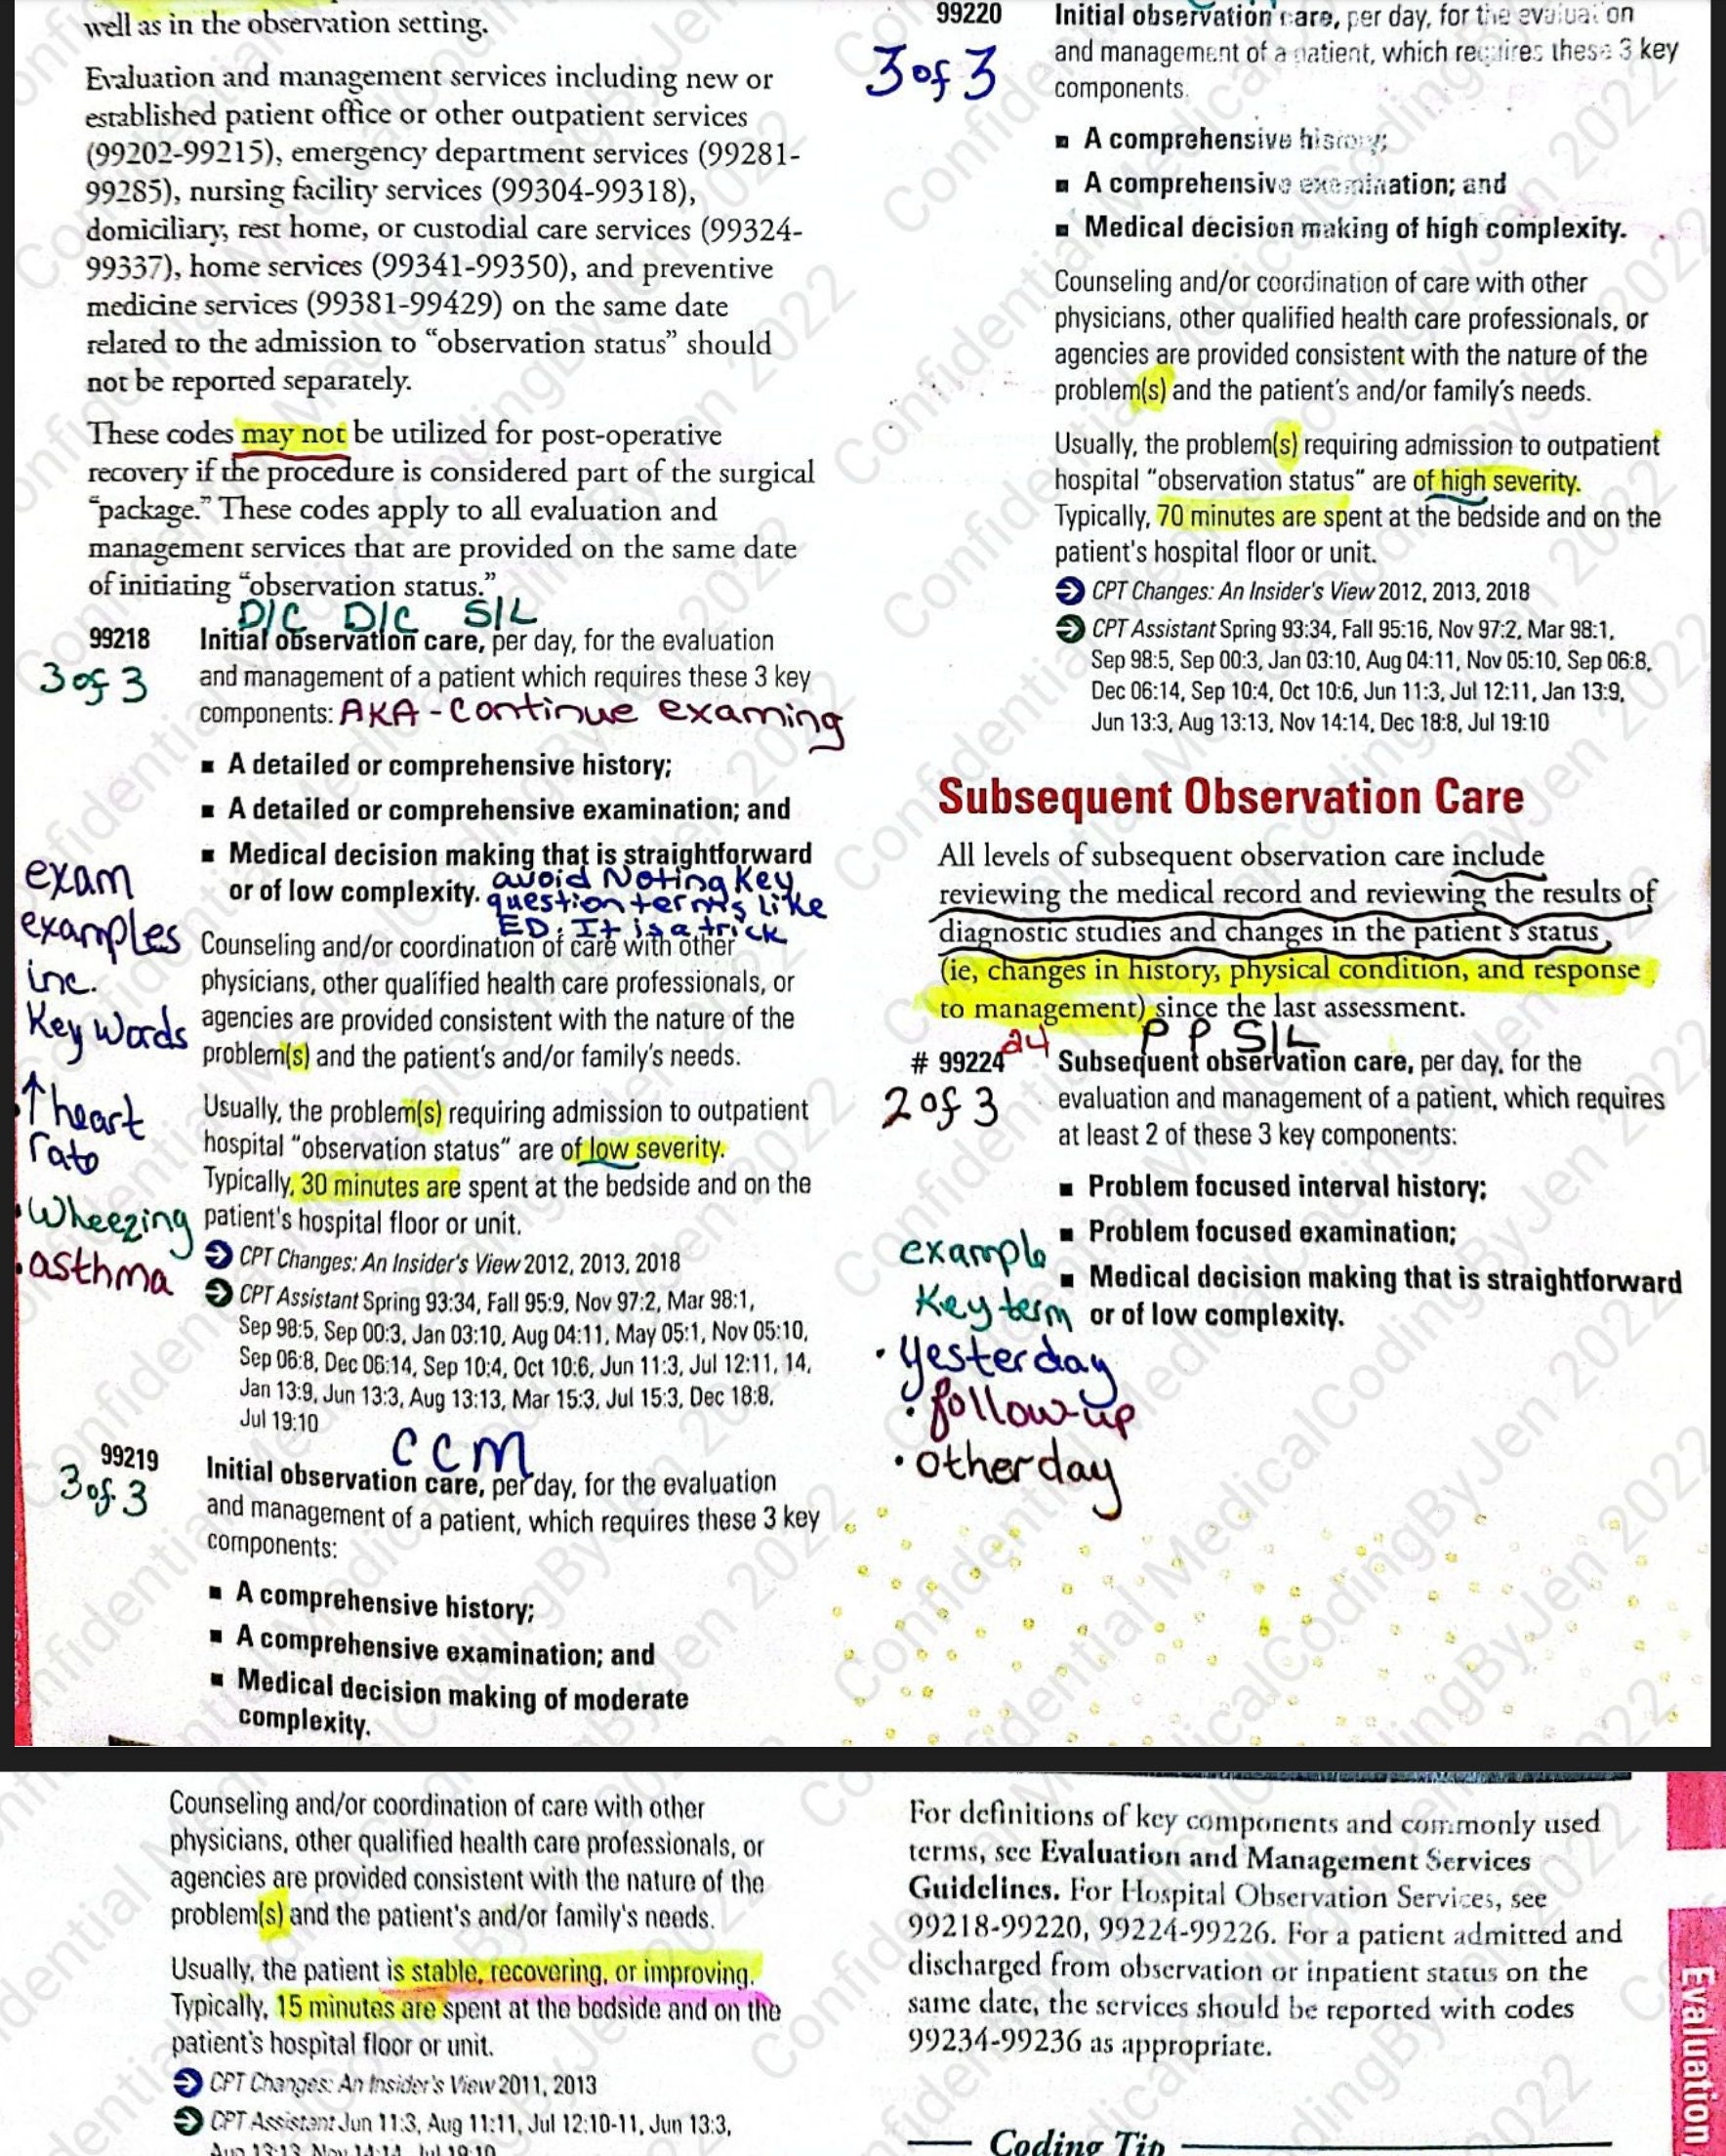 well as in the observation setting.
Evaluation and management services including new or
established patient office or other outpatient services
(99202-99215), emergency department services (99281-
99285), nursing facility services (99304-99318),
domiciliary, rest home, or custodial care services (99324-
99337), home services (99341-99350), and preventive
medicine services (99381-99429) on the same date
related to the admission to “observation status” should
not be reported separately.
These codes may not be utilized for post-operative
recovery if the procedure is considered part of the surgical
“package.” These codes apply to all evaluation and
management services that are provided on the same date
of initiating “observation status.”
D/C D/C S/L
99218 Initial observation care, per day, for the evaluation
3 of 3
and management of a patient which requires these 3 key
components: AKA - Continue examing
■ A detailed or comprehensive history;
■ A detailed or comprehensive examination; and
■ Medical decision making that is straightforward
or of low complexity.
avoid Noting Key
question terms like
ED. It is a trick
exam
examples
inc.
Key Words
↑ heart
rate
• Wheezing
• asthma
Counseling and/or coordination of care with other
physicians, other qualified health care professionals, or
agencies are provided consistent with the nature of the
problem(s) and the patient's and/or family's needs.
Usually, the problem(s) requiring admission to outpatient
hospital “observation status” are of low severity.
Typically, 30 minutes are spent at the bedside and on the
patient's hospital floor or unit.
CPT Changes: An Insider's View 2012, 2013, 2018
CPT Assistant Spring 93:34, Fall 95:9, Nov 97:2, Mar 98:1,
Sep 98:5, Sep 00:3, Jan 03:10, Aug 04:11, May 05:1, Nov 05:10,
Sep 06:8, Dec 06:14, Sep 10:4, Oct 10:6, Jun 11:3, Jul 12:11, 14,
Jan 13:9, Jun 13:3, Aug 13:13, Mar 15:3, Jul 15:3, Dec 18:8,
Jul 19:10
C C M
99219 Initial observation care, per day, for the evaluation
3 of 3
and management of a patient, which requires these 3 key
components:
■ A comprehensive history;
■ A comprehensive examination; and
■ Medical decision making of moderate
complexity.
99220 Initial observation care, per day, for the evaluation
3 of 3
and management of a patient, which requires these 3 key
components.
■ A comprehensive history;
■ A comprehensive examination; and
■ Medical decision making of high complexity.
Counseling and/or coordination of care with other
physicians, other qualified health care professionals, or
agencies are provided consistent with the nature of the
problem(s) and the patient's and/or family's needs.
Usually, the problem(s) requiring admission to outpatient
hospital “observation status” are of high severity.
Typically, 70 minutes are spent at the bedside and on the
patient's hospital floor or unit.
CPT Changes: An Insider's View 2012, 2013, 2018
CPT Assistant Spring 93:34, Fall 95:16, Nov 97:2, Mar 98:1,
Sep 98:5, Sep 00:3, Jan 03:10, Aug 04:11, Nov 05:10, Sep 06:8,
Dec 06:14, Sep 10:4, Oct 10:6, Jun 11:3, Jul 12:11, Jan 13:9,
Jun 13:3, Aug 13:13, Nov 14:14, Dec 18:8, Jul 19:10
Subsequent Observation Care
All levels of subsequent observation care include
reviewing the medical record and reviewing the results of
diagnostic studies and changes in the patient's status
(ie, changes in history, physical condition, and response
to management) since the last assessment.
24 P P S/L
# 99224 Subsequent observation care, per day, for the
2 of 3
evaluation and management of a patient, which requires
at least 2 of these 3 key components:
■ Problem focused interval history;
■ Problem focused examination;
■ Medical decision making that is straightforward
or of low complexity.
example
Key term
• Yesterday
• follow-up
• other day
Counseling and/or coordination of care with other
physicians, other qualified health care professionals, or
agencies are provided consistent with the nature of the
problem(s) and the patient's and/or family's needs.
Usually, the patient is stable, recovering, or improving.
Typically, 15 minutes are spent at the bedside and on the
patient's hospital floor or unit.
CPT Changes: An Insider's View 2011, 2013
CPT Assistant Jun 11:3, Aug 11:11, Jul 12:10-11, Jun 13:3,
Aug 13:13, Nov 14:14, Jul 19:10
For definitions of key components and commonly used
terms, see Evaluation and Management Services
Guidelines. For Hospital Observation Services, see
99218-99220, 99224-99226. For a patient admitted and
discharged from observation or inpatient status on the
same date, the services should be reported with codes
99234-99236 as appropriate.
Coding Tip
Evaluation
Confidential MedicalCodingByJen 2022